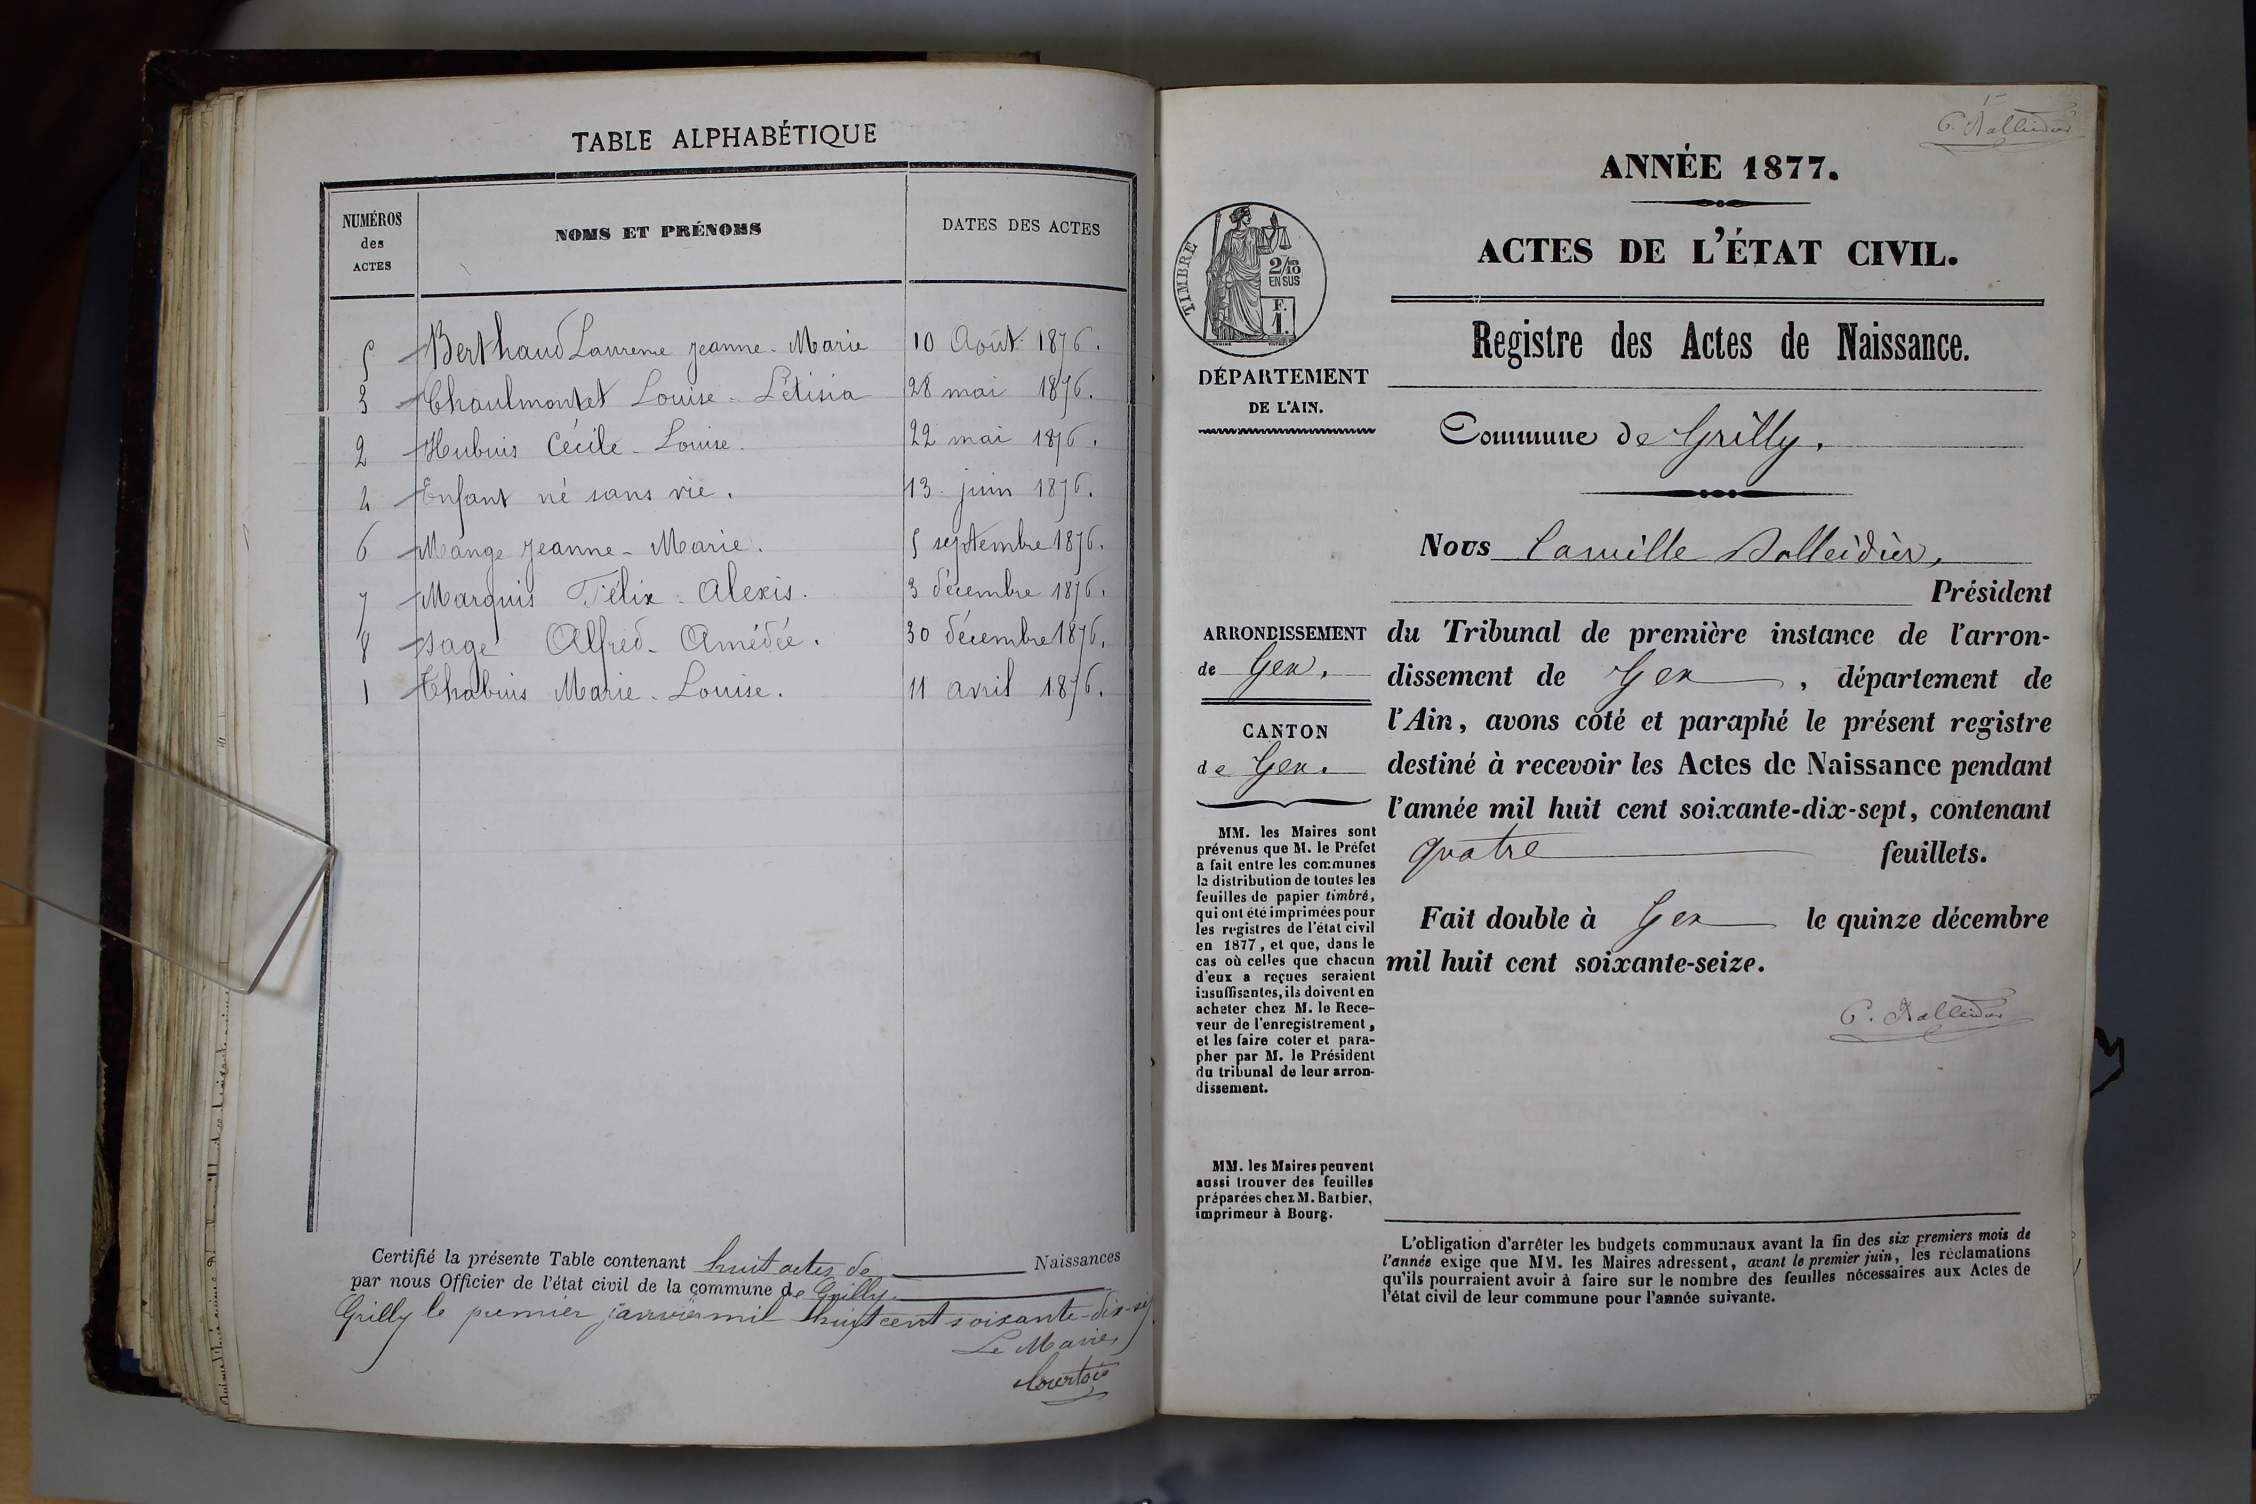 TABLE ALPHABÉTIQUE
NUMÉROS
des
ACTES
NOMS ET PRÉNOMS
DATES DES ACTES
5 Berthaud Laurence Jeanne-Marie 10 Août 1876.
3 Chaulmontet Louise-Létisia 28 mai 1876.
2 Hubuis Cécile-Louise. 22 mai 1876.
4 Enfant né sans vie. 13 juin 1876.
6 Mange Jeanne-Marie. 5 septembre 1876.
7 Marquis Félix-Alexis. 3 décembre 1876.
8 Sage Alfred-Amédée. 30 décembre 1876.
1 Thabuis Marie-Louise. 11 avril 1876.
Certifié la présente Table contenant huit actes de Naissances
par nous Officier de l'état civil de la commune de Grilly.
Grilly le premier janvier mil huit cent soixante-dix-sept
Le Maire,
Courtois
ANNÉE 1877.
ACTES DE L'ÉTAT CIVIL.
Registre des Actes de Naissance.
TIMBRE
2/10
EN SUS
F.
1.
DÉPARTEMENT
DE L'AIN.
Commune de Grilly.
Nous Camille
Président
ARRONDISSEMENT
de Gex.
CANTON
de Gex.
du Tribunal de première instance de l'arron-
dissement de Gex, département de
l'Ain, avons coté et paraphé le présent registre
destiné à recevoir les Actes de Naissance pendant
l'année mil huit cent soixante-dix-sept, contenant
quatre feuillets.
Fait double à Gex le quinze décembre
mil huit cent soixante-seize.
MM. les Maires sont
prévenus que M. le Préfet
a fait entre les communes
la distribution de toutes les
feuilles de papier timbré,
qui ont été imprimées pour
les registres de l'état civil
en 1877, et que, dans le
cas où celles que chacun
d'eux a reçues seraient
insuffisantes, ils doivent en
acheter chez M. le Rece-
veur de l'enregistrement,
et les faire coter et para-
pher par M. le Président
du tribunal de leur arron-
dissement.
MM. les Maires peuvent
aussi trouver des feuilles
préparées chez M. Barbier,
imprimeur à Bourg.
L'obligation d'arrêter les budgets communaux avant la fin des six premiers mois de
l'année exige que MM. les Maires adressent, avant le premier juin, les réclamations
qu'ils pourraient avoir à faire sur le nombre des feuilles nécessaires aux Actes de
l'état civil de leur commune pour l'année suivante.